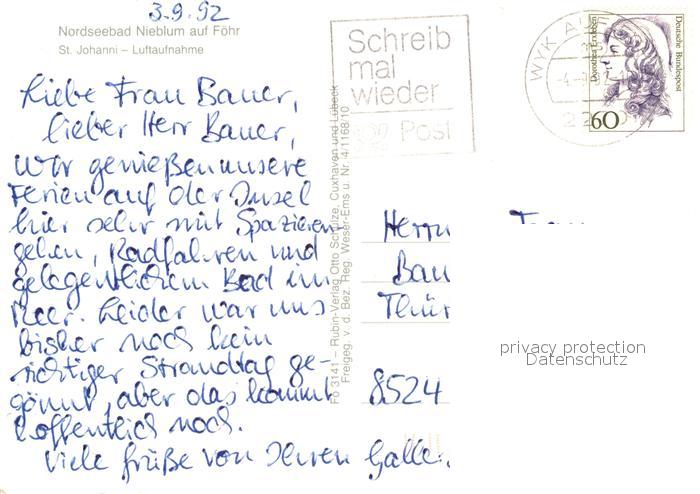 3.9.92
Nordseebad Nieblum auf Föhr
St. Johanni – Luftaufnahme
Liebe Frau Bauer,
lieber Herr Bauer,
Wir genießen unsere
Ferien auf der Insel
hier sehr mit Spazieren-
gehen, Radfahren und
gelegentlichem Bad im
Meer. Leider war uns
bisher noch kein
richtiger Strandtag ge-
gönnt, aber das kommt
hoffentlich noch.
Viele Grüße von Ihren Galle
Fö 3141 – Rubin-Verlag Otto Schulze, Cuxhaven und Lübeck
Freigeg. v. d. Bez. Reg. Weser-Ems u. Nr. 4/1168/10
Schreib
mal
wieder
Post
WYK AUF
Deutsche Bundespost
60
Herrn
Bau
Thür
8524
privacy protection
Datenschutz